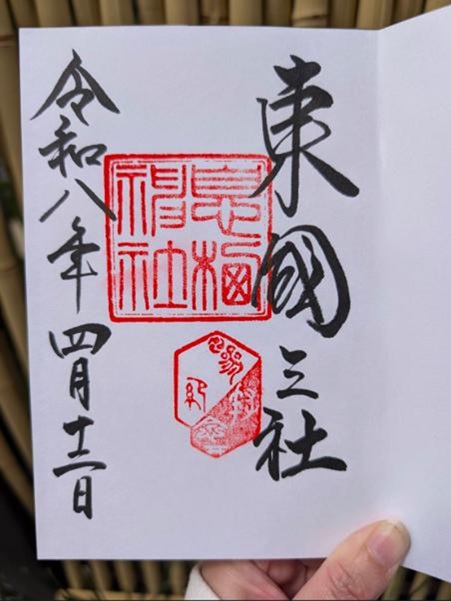 東國三社
息栖神社
令和八年四月十二日